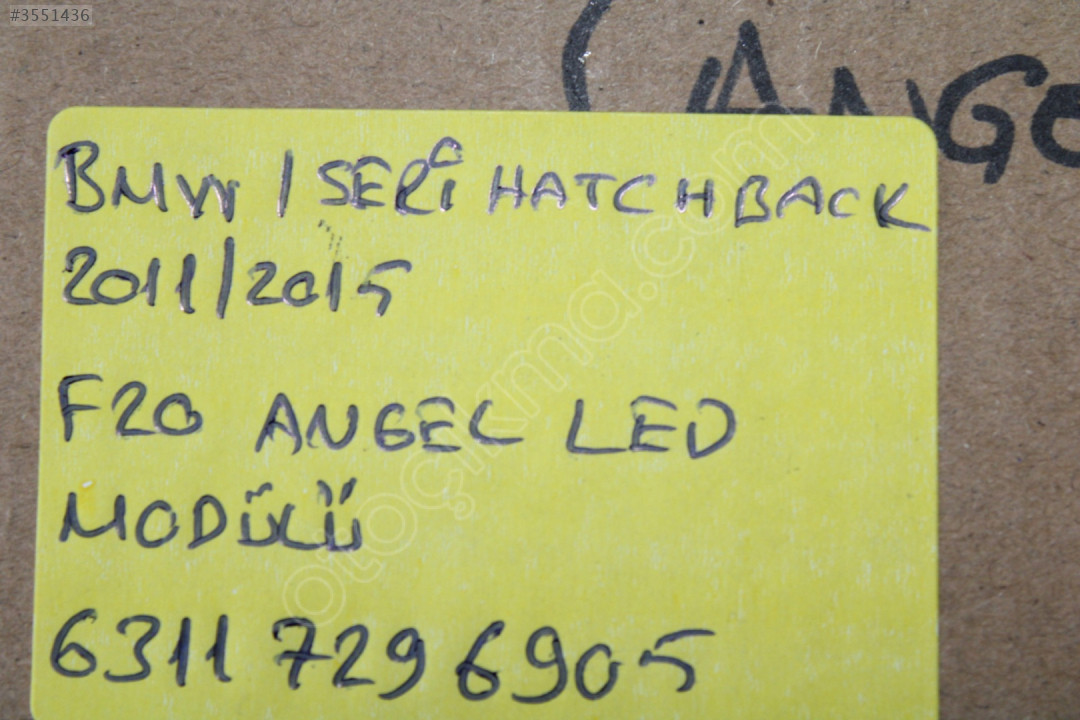 #3551436
ANGE
BMW 1 SERİ HATCHBACK
2011/2015
F20 ANGEL LED
MODÜLÜ
6311 729 6905
otoçıkma.com